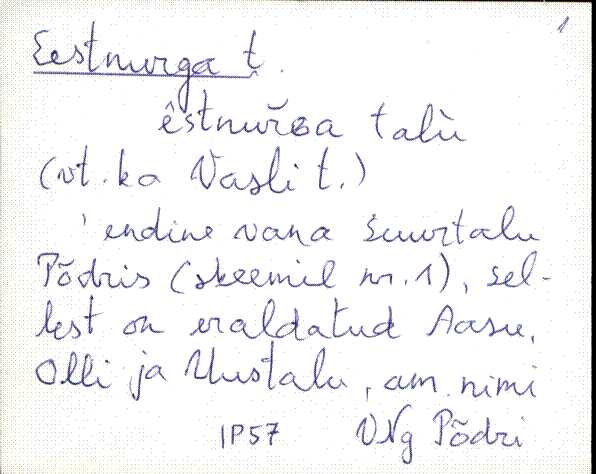 1
Eestnurga t.
êstnur̆ɢa talù
(vt. ka Vasli t.)
' endine vana suurtalu
Põdris (skeemil nr. 1), sel-
lest on eraldatud Aasu,
Olli ja Uustalu, am. nimi
IP57 VNg Põdri